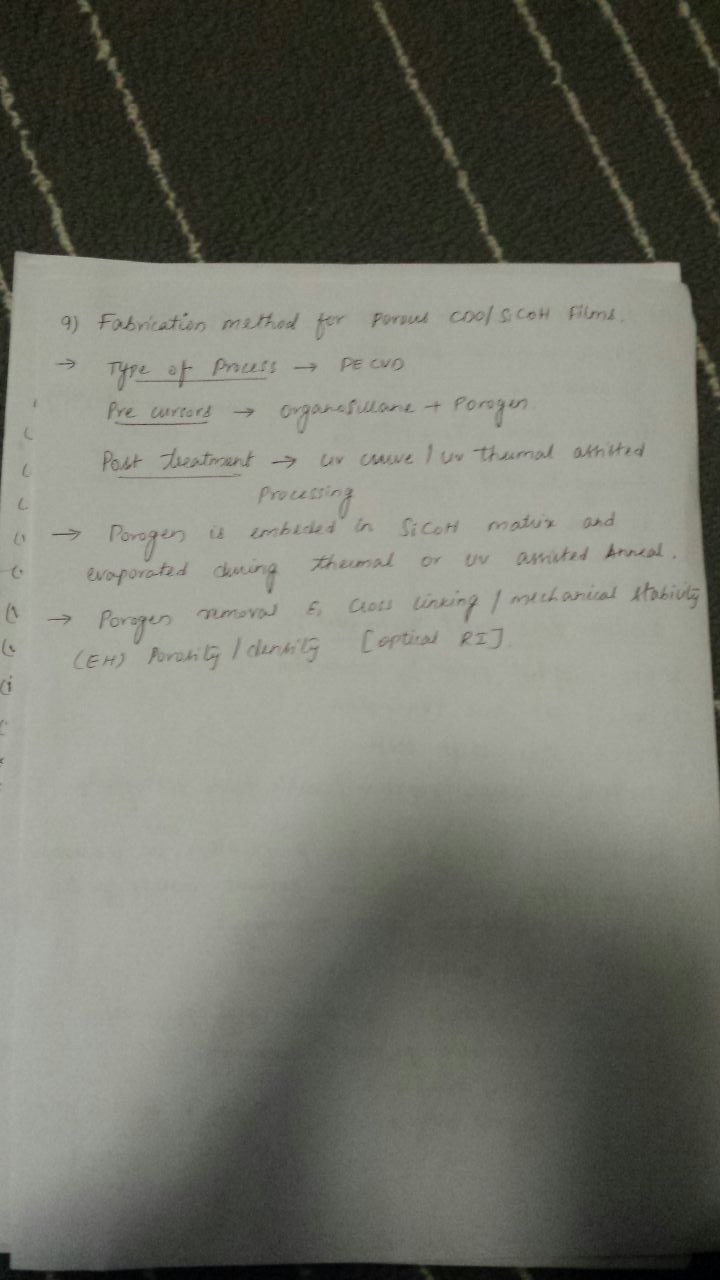 9) Fabrication method for Porous CDO/SiCOH Films.
→ Type of Process → PECVD
Pre cursors → Organosilane + Porogen.
Post treatment → UV cure / UV thermal assisted
Processing
→ Porogen is embeded in SiCOH matrix and
evaporated during thermal or UV assisted Anneal.
→ Porogen removal & Cross linking / mechanical stability
(EH) Porosity / density [optical RI].